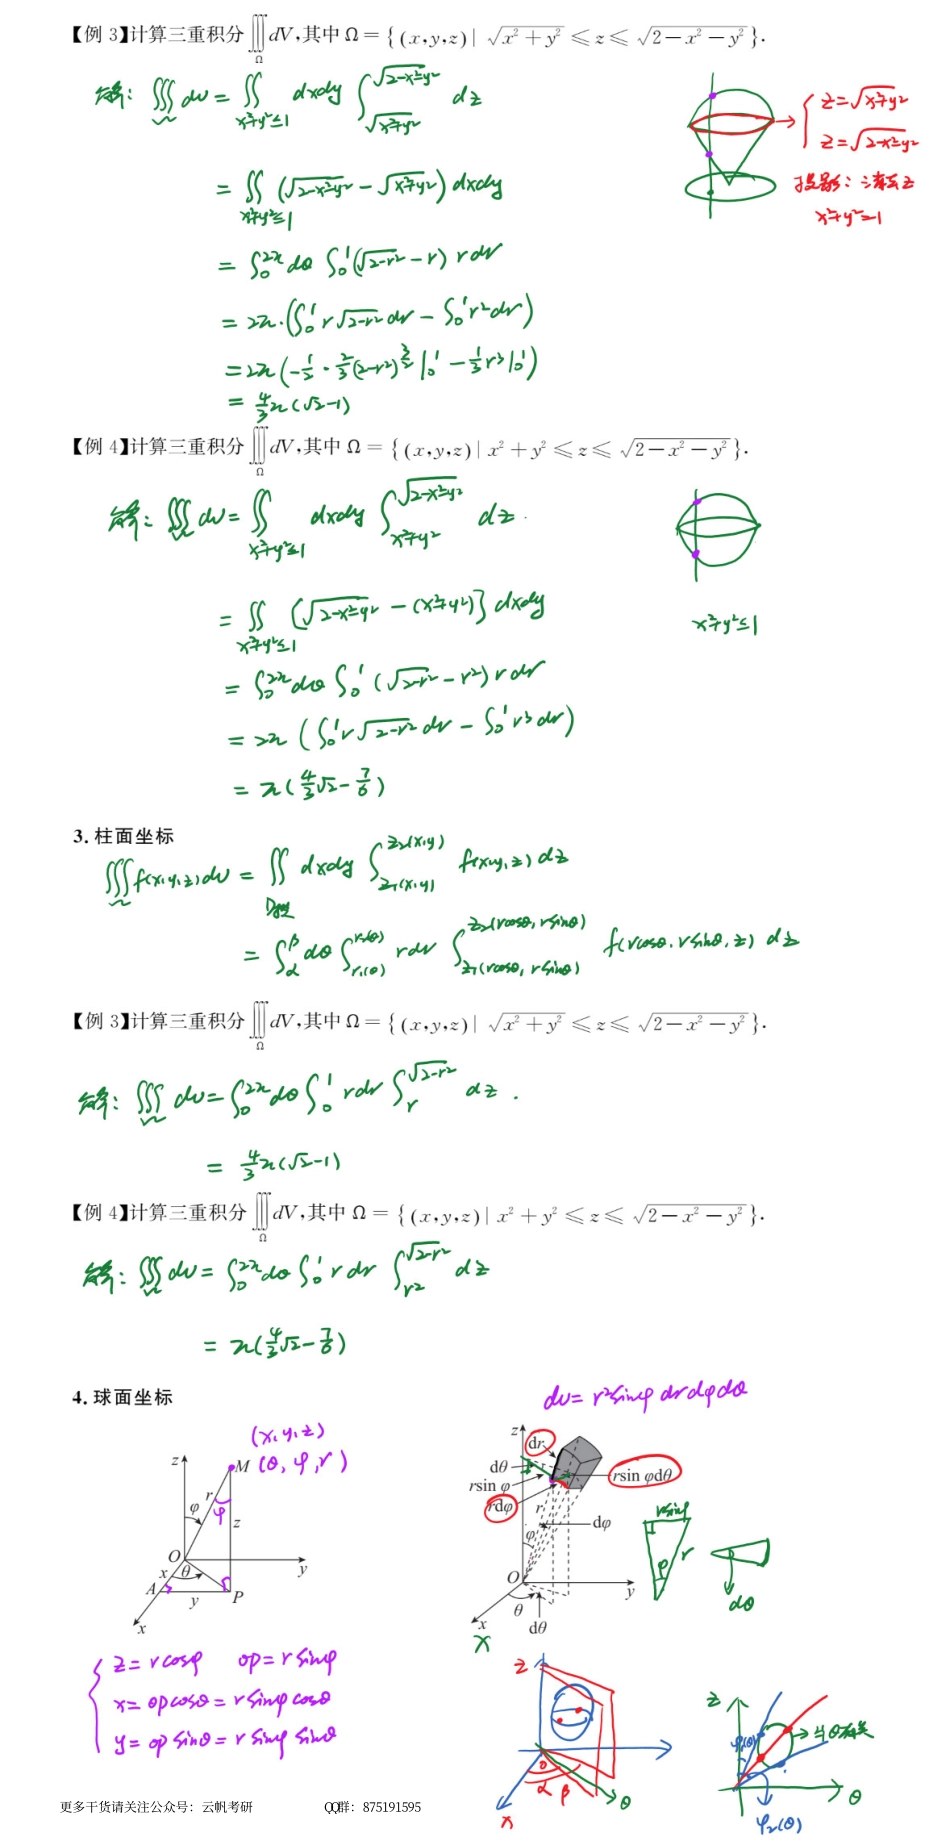 【例 3】计算三重积分∭_Ω dV,其中 Ω = {(x,y,z) | √(x²+y²) ≤ z ≤ √(2-x²-y²)}.
解: ∭_Ω dv = ∬_{x²+y²≤1} dxdy ∫_{√(x²+y²)}^{√(2-x²-y²)} dz
z=√(x²+y²)
z=√(2-x²-y²)
投影: 消去z
x²+y²=1
= ∬_{x²+y²≤1} (√(2-x²-y²) - √(x²+y²)) dxdy
= ∫_0^{2π} dθ ∫_0^1 (√(2-r²) - r) r dr
= 2π·(∫_0^1 r√(2-r²) dr - ∫_0^1 r² dr)
= 2π(-1/2 · 2/3 (2-r²)^{3/2} |_0^1 - 1/3 r³ |_0^1)
= 4/3 π(√2-1)
【例 4】计算三重积分∭_Ω dV,其中 Ω = {(x,y,z) | x²+y² ≤ z ≤ √(2-x²-y²)}.
解: ∭_Ω dv = ∬_{x²+y²≤1} dxdy ∫_{x²+y²}^{√(2-x²-y²)} dz.
x²+y²≤1
= ∬_{x²+y²≤1} [√(2-x²-y²) - (x²+y²)] dxdy
= ∫_0^{2π} dθ ∫_0^1 (√(2-r²) - r²) r dr
= 2π (∫_0^1 r√(2-r²) dr - ∫_0^1 r³ dr)
= π(4/3 √2 - 7/6)
3. 柱面坐标
∭_Ω f(x,y,z) dv = ∬_{Dxy} dxdy ∫_{z₁(x,y)}^{z₂(x,y)} f(x,y,z) dz
= ∫_α^β dθ ∫_{r₁(θ)}^{r₂(θ)} r dr ∫_{z₁(rcosθ, rsinθ)}^{z₂(rcosθ, rsinθ)} f(rcosθ, rsinθ, z) dz
【例 3】计算三重积分∭_Ω dV,其中 Ω = {(x,y,z) | √(x²+y²) ≤ z ≤ √(2-x²-y²)}.
解: ∭_Ω dv = ∫_0^{2π} dθ ∫_0^1 r dr ∫_r^{√(2-r²)} dz.
= 4/3 π(√2-1)
【例 4】计算三重积分∭_Ω dV,其中 Ω = {(x,y,z) | x²+y² ≤ z ≤ √(2-x²-y²)}.
解: ∭_Ω dv = ∫_0^{2π} dθ ∫_0^1 r dr ∫_{r²}^{√(2-r²)} dz
= π(4/3 √2 - 7/6)
4. 球面坐标
dv = r²sinφ dr dφ dθ
(x,y,z)
M (θ, φ, r)
z
r
φ
φ
z
O
x
θ
y
A
y
P
x
z
dr
dθ
rsin φ
rsin φdθ
rdφ
r
dφ
φ
O
y
θ
x
dθ
x
rsinφ
r
φ
dθ
z=rcosφ op=rsinφ
x=opcosθ=rsinφcosθ
y=opsinθ=rsinφsinθ
z
α
β
θ
x
z
φ₁(θ)
与θ有关
θ
φ₂(θ)
更多干货请关注公众号：云帆考研 QQ群：875191595